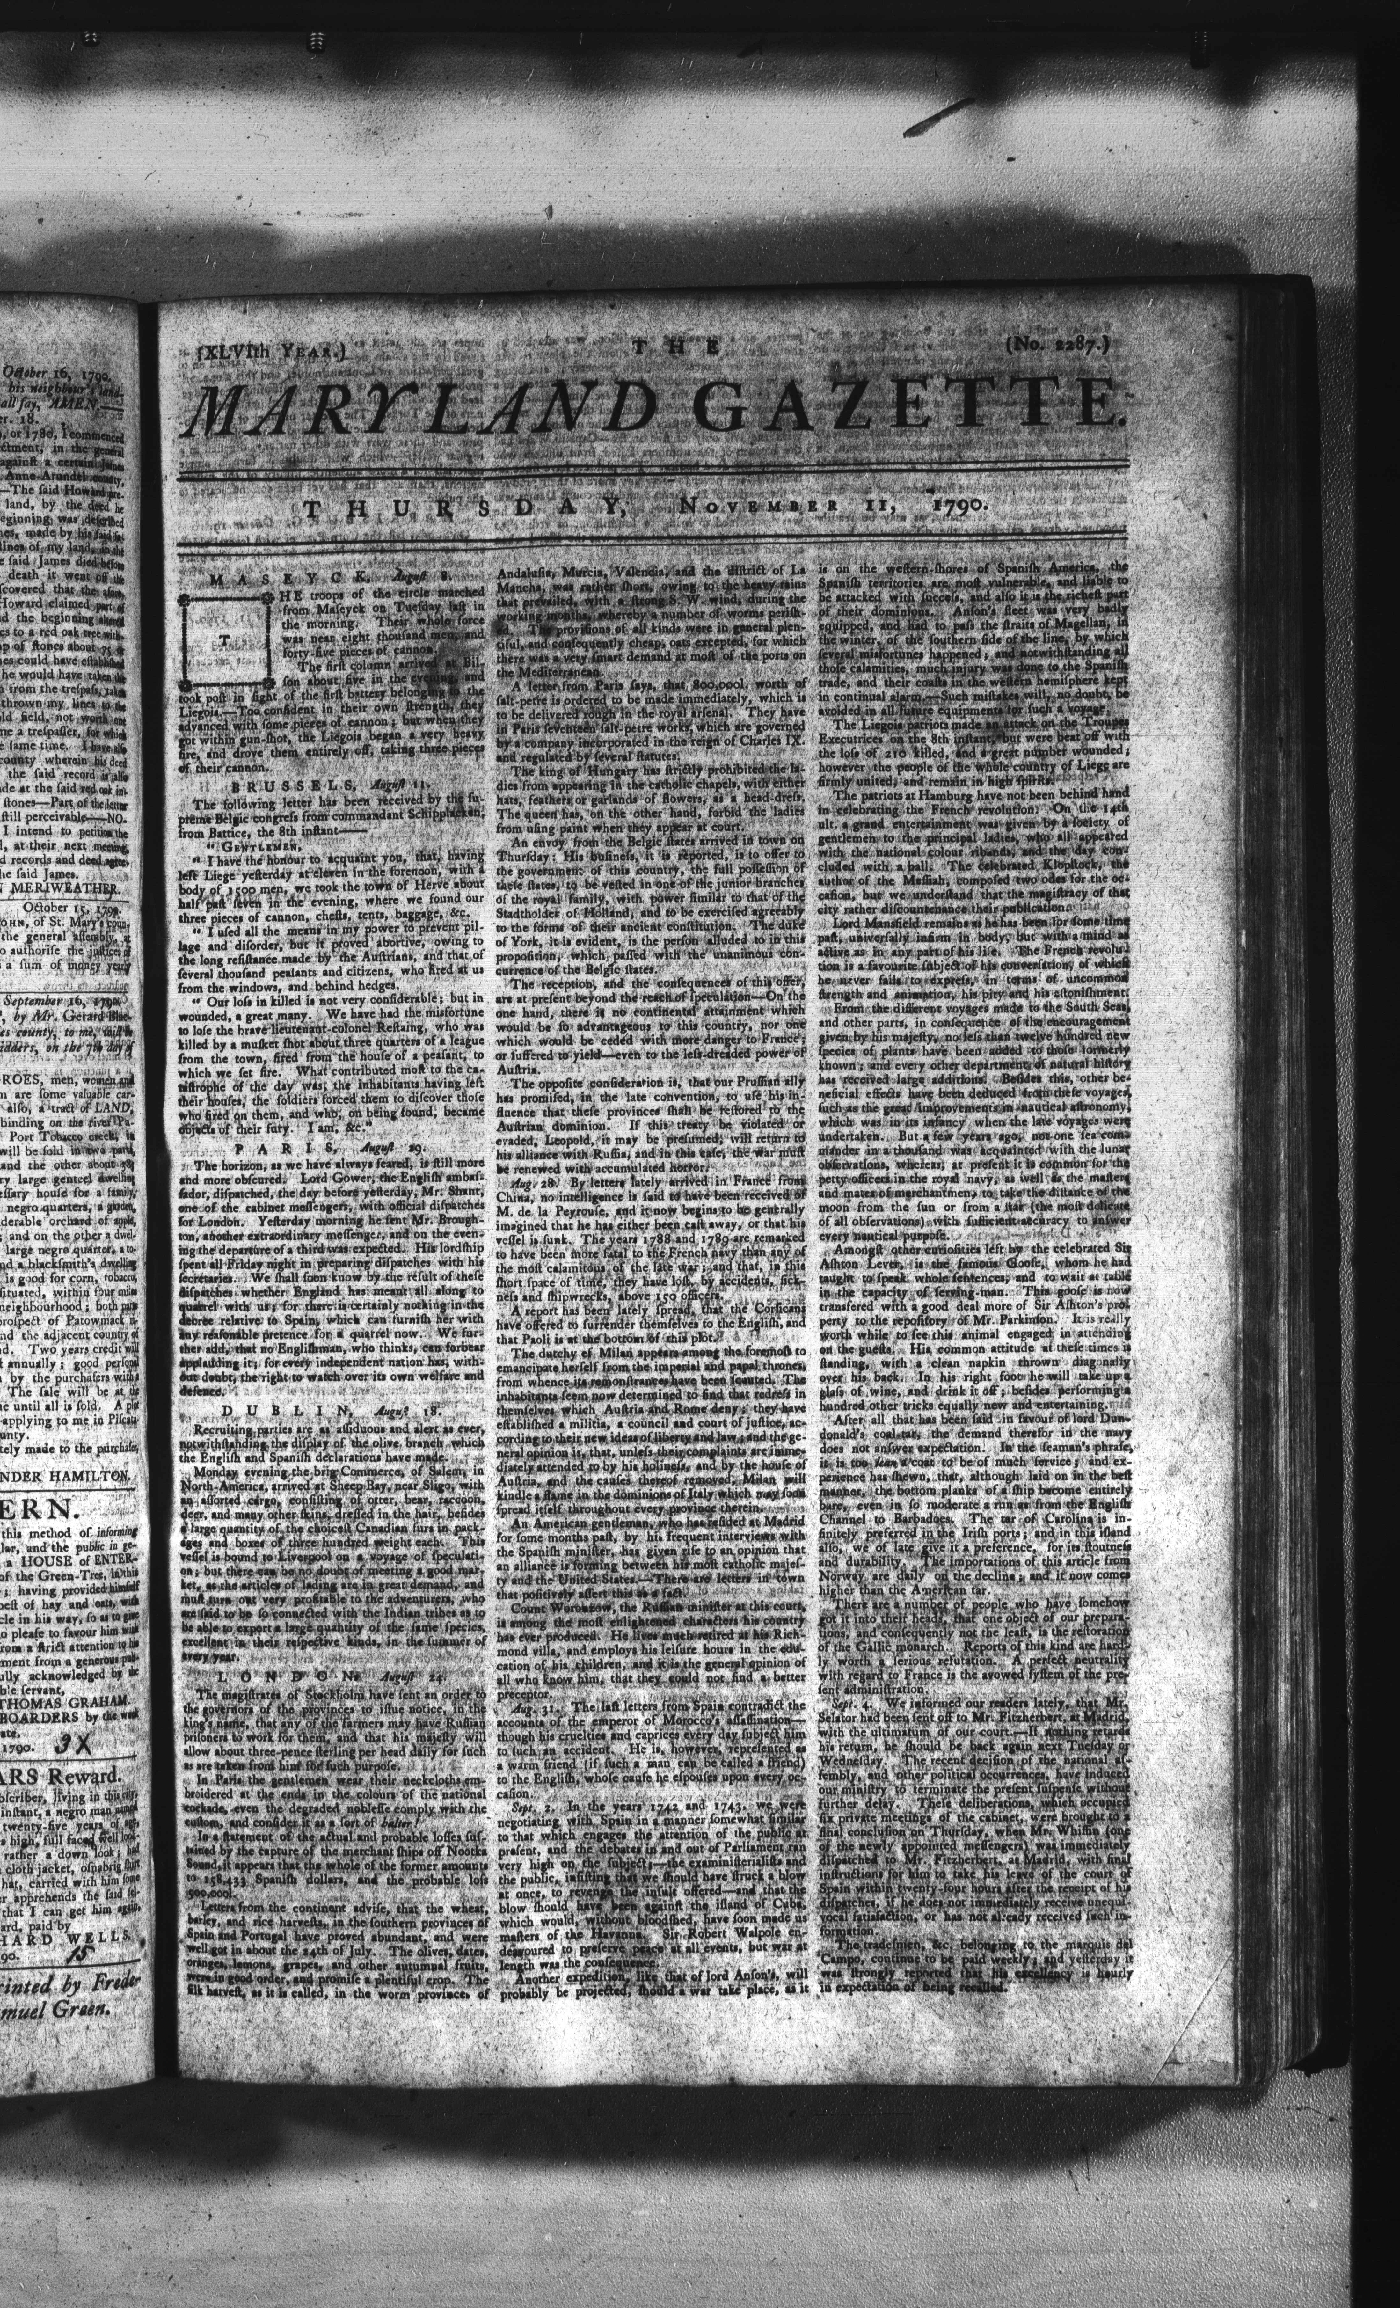 October 16, 1790.
his neighbour's land-
all ſay, AMEN.—
er. 18.
, or 1780, I commenced
ctment, in the general
againſt a certain James
Anne-Arundel county,
—The ſaid Howard pre-
land, by the deed he
eginning was deſcribed
nes, made by his ſaid
lines of my land,
e ſaid James died before
death it went off the
ſcovered that the
Howard claimed part of
d the beginning
es to a red oak tree with-
p of ſtones about 75
nes could have eſtabliſhed
he would have taken the
n from the treſpaſs, take
thrown my lines to the
old field, not worth one
me a treſpaſſer, for which
e ſame time. I have alſo
county wherein his deed
the ſaid record is alſo
de at the ſaid red oak in-
ſtones—Part of the letter
ſtill perceivable—NO.
I intend to petition the
l, at their next meeting,
d records and deed agree,
he ſaid James.
N MERIWETHER.
October 15, 1790.
OHN, of St. Mary's coun-
the general aſſembly,
o authoriſe the juſtices
a ſum of money yearly
September 16, 1790.
, by Mr. Gerard
es county, to me,
idders, on the 7th day of
ROES, men, women and
m are ſome valuable car-
alſo, a tract of LAND,
binding on the river Pa-
Port Tobacco creek, in
will be ſold in two parts,
and the other about
ry large genteel dwelling
ſſary houſe for a family,
negro quarters, a garden,
derable orchard of apple,
; and on the other a dwel-
large negro quarter, a to-
nd a blackſmith's dwelling
is good for corn, tobacco,
ſituated, within four miles
neighbourhood; both
proſpect of Patowmack
nd the adjacent country of
d. Two years credit will
annually; good perſonal
n by the purchaſers with
The ſale will be at the
ne until all is ſold. A plot
applying to me in Piſcat-
unty.
tely made to the purchaſe,
NDER HAMILTON.
ERN.
this method of informing
lar, and the public in ge-
a HOUSE of ENTER-
of the Green-Tree, in this
; having provided himſelf
beſt of hay and oats, with
cle in his way, ſo as to give
o pleaſe to favour him with
from a ſtrict attention to his
ment from a generous pub-
ully acknowledged by the
ble ſervant,
THOMAS GRAHAM.
BOARDERS by the week
ate.
1790. 3X
ARS Reward.
bſcriber, living in this city,
inſtant, a negro man named
twenty-five years of age,
s high, full faced well look-
rather a down look; had
cloth jacket, oſnabrig ſhirt
hat, carried with him ſome
er apprehends the ſaid fel-
that I can get him again,
ard, paid by
HARD WELLS.
90. 15
rinted by Freder
muel Green.
(XLVIth YEAR.)
THE
(No. 2287.)
MARYLAND GAZETTE.
THURSDAY, NOVEMBER 11, 1790.
MASEYCK, Auguſt 8.
THE troops of the circle marched
from Maſeyck on Tueſday laſt in
the morning. Their whole force
was near eight thouſand men, and
forty-five pieces of cannon.
The firſt column arrived at Bil-
ſon about five in the evening, and
took poſt in ſight of the firſt battery belonging to the
Liegois.—Too confident in their own ſtrength, they
advanced with ſome pieces of cannon; but when they
got within gun-ſhot, the Liegois began a very heavy
fire, and drove them entirely off, taking three pieces
of their cannon.
BRUSSELS, Auguſt 11.
The following letter has been received by the ſu-
preme Belgic congreſs from commandant Schipplacken,
from Battice, the 8th inſtant——
" GENTLEMEN,
" I have the honour to acquaint you, that, having
left Liege yeſterday at eleven in the forenoon, with a
body of 1500 men, we took the town of Herve about
half paſt ſeven in the evening, where we found our
three pieces of cannon, cheſts, tents, baggage, &c.
" I uſed all the means in my power to prevent pil-
lage and diſorder, but it proved abortive, owing to
the long reſiſtance made by the Auſtrians, and that of
ſeveral thouſand peaſants and citizens, who fired at us
from the windows, and behind hedges.
" Our loſs in killed is not very conſiderable; but in
wounded, a great many. We have had the misfortune
to loſe the brave lieutenant-colonel Reſtaing, who was
killed by a muſket ſhot about three quarters of a league
from the town, fired from the houſe of a peaſant, to
which we ſet fire. What contributed moſt to the ca-
taſtrophe of the day was, the inhabitants having left
their houſes, the ſoldiers forced them to diſcover thoſe
who fired on them, and who, on being found, became
objects of their fury. I am, &c."
PARIS, Auguſt 29.
The horizon, as we have always feared, is ſtill more
and more obſcured. Lord Gower, the Engliſh ambaſ-
ſador, diſpatched, the day before yeſterday, Mr. Shant,
one of the cabinet meſſengers, with official diſpatches
for London. Yeſterday morning he ſent Mr. Brough-
ton, another extraordinary meſſenger, and on the even-
ing the departure of a third was expected. His lordſhip
ſpent all Friday night in preparing diſpatches with his
ſecretaries. We ſhall ſoon know by the reſult of theſe
diſpatches whether England has meant all along to
quarrel with us; for there is certainly nothing in the
decree relative to Spain, which can furniſh her with
any reaſonable pretence for a quarrel now. We fur-
ther add, that no Engliſhman, who thinks, can forbear
applauding it; for every independent nation has, with-
out doubt, the right to watch over its own welfare and
defence.
DUBLIN, Auguſt 18.
Recruiting parties are as aſſiduous and alert as ever,
notwithſtanding the diſplay of the olive branch which
the Engliſh and Spaniſh declarations have made.
Monday evening the brig Commerce, of Salem, in
North-America, arrived at Sheep Bay, near Sligo, with
an aſſorted cargo, conſiſting of otter, bear, raccoon,
deer, and many other ſkins, dreſſed in the hair, beſides
a large quantity of the choiceſt Canadian furs in pack-
ages and boxes of three hundred weight each. This
veſſel is bound to Liverpool on a voyage of ſpeculati-
on; but there can be no doubt of meeting a good mar-
ket, as the articles of lading are in great demand, and
muſt turn out very profitable to the adventurers, who
are ſaid to be ſo connected with the Indian tribes as to
be able to export a large quantity of the ſame ſpecies,
excellent in their reſpective kinds, in the ſummer of
every year.
LONDON, Auguſt 24.
The magiſtrates of Stockholm have ſent an order to
the governors of the provinces to iſſue notice, in the
king's name, that any of the farmers may have Ruſſian
priſoners to work for them, and that his majeſty will
allow about three-pence ſterling per head daily for ſuch
as are taken from him for ſuch purpoſe.
In Paris the gentlemen wear their neckcloths em-
broidered at the ends in the colours of the national
cockade, even the degraded nobleſſe comply with the
cuſtom, and conſider it as a ſort of halter!
In a ſtatement of the actual and probable loſſes ſuſ-
tained by the capture of the merchant ſhips off Nootka
Sound, it appears that the whole of the former amounts
to 158,433 Spaniſh dollars, and the probable loſs
500,000l.
Letters from the continent adviſe, that the wheat,
barley, and rice harveſts, in the ſouthern provinces of
Spain and Portugal have proved abundant, and were
well got in about the 24th of July. The olives, dates,
oranges, lemons, grapes, and other autumnal fruits,
were in good order, and promiſe a plentiful crop. The
ſilk harveſt, as it is called, in the worm provinces of
Andaluſia, Murcia, Valencia, and the diſtrict of La
Mancha, was rather ſhort, owing to the heavy rains
that prevailed, with a ſtrong S. W. wind, during the
working months, whereby a number of worms periſh-
ed. The proviſions of all kinds were in general plen-
tiful, and conſequently cheap, oats excepted, for which
there was a very ſmart demand at moſt of the ports on
the Mediterranean.
A letter from Paris ſays, that 800,000l. worth of
ſalt-petre is ordered to be made immediately, which is
to be delivered rough in the royal arſenal. They have
in Paris ſeventeen ſalt-petre works, which are governed
by a company incorporated in the reign of Charles IX.
and regulated by ſeveral ſtatutes.
The king of Hungary has ſtrictly prohibited the la-
dies from appearing in the catholic chapels, with either
hats, feathers or garlands of flowers, as a head-dreſs.
The queen has, on the other hand, forbid the ladies
from uſing paint when they appear at court.
An envoy from the Belgic ſtates arrived in town on
Thurſday: His buſineſs, it is reported, is to offer to
the government of this country, the full poſſeſſion of
theſe ſtates, to be veſted in one of the junior branches
of the royal family, with power ſimilar to that of the
Stadtholder of Holland, and to be exerciſed agreeably
to the forms of their ancient conſtitution. The duke
of York, it is evident, is the perſon alluded to in this
propoſition, which paſſed with the unanimous con-
currence of the Belgic ſtates.
The reception, and the conſequences of this offer,
are at preſent beyond the reach of ſpeculation—On the
one hand, there is no continental attainment which
would be ſo advantageous to this country, nor one
which would be ceded with more danger to France;
or ſuffered to yield—even to the leſs-dreaded power of
Auſtria.
The oppoſite conſideration is, that our Pruſſian ally
has promiſed, in the late convention, to uſe his in-
fluence that theſe provinces ſhall be reſtored to the
Auſtrian dominion. If this treaty be violated or
evaded, Leopold, it may be preſumed, will return to
his alliance with Ruſſia, and in this caſe, the war muſt
be renewed with accumulated horror.
Aug. 28. By letters lately arrived in France from
China, no intelligence is ſaid to have been received of
M. de la Peyrouſe, and it now begins to be generally
imagined that he has either been caſt away, or that his
veſſel is ſunk. The years 1788 and 1789 are remarked
to have been more fatal to the French navy than any of
the moſt calamitous of the late war; and that, in this
ſhort ſpace of time, they have loſt, by accidents, ſick-
neſs and ſhipwrecks, above 150 officers.
A report has been lately ſpread, that the Corſicans
have offered to ſurrender themſelves to the Engliſh, and
that Paoli is at the bottom of this plot.
The dutchy of Milan appears among the foremoſt to
emancipate herſelf from the imperial and papal thrones,
from whence its remonſtrances have been ſcouted. The
inhabitants ſeem now determined to find that redreſs in
themſelves which Auſtria and Rome deny; they have
eſtabliſhed a militia, a council and court of juſtice, ac-
cording to their new ideas of liberty and law; and the ge-
neral opinion is, that, unleſs their complaints are imme-
diately attended to by his holineſs, and by the houſe of
Auſtria, and the cauſes thereof removed, Milan will
kindle a flame in the dominions of Italy which may ſoon
ſpread itſelf throughout every province therein.
An American gentleman, who has reſided at Madrid
for ſome months paſt, by his frequent interviews with
the Spaniſh miniſter, has given riſe to an opinion that
an alliance is forming between his moſt catholic majeſ-
ty and the United States.—There are letters in town
that poſitively aſſert this as a fact.
Count Woronzow, the Ruſſian miniſter at this court,
is among the moſt enlightened characters his country
has ever produced. He lives much retired at his Rich-
mond villa, and employs his leiſure hours in the edu-
cation of his children, and it is the general opinion of
all who know him, that they could not find a better
preceptor.
Aug. 31. The laſt letters from Spain contradict the
accounts of the emperor of Morocco's aſſaſſination—
though his cruelties and caprices every day ſubject him
to ſuch an accident. He is, however, repreſented as
a warm friend (if ſuch a man can be called a friend)
to the Engliſh, whoſe cauſe he eſpouſes upon every oc-
caſion.
Sept. 2. In the years 1742 and 1743, we were
negotiating with Spain in a manner ſomewhat ſimilar
to that which engages the attention of the public at
preſent, and the debates in and out of Parliament ran
very high on the ſubject;—the examiniſterialiſts and
the public, inſiſting that we ſhould have ſtruck a blow
at once, to revenge the inſult offered—and that the
blow ſhould have been againſt the iſland of Cuba,
which would, without bloodſhed, have ſoon made us
maſters of the Havanna. Sir Robert Walpole en-
deavoured to preſerve peace at all events, but war at
length was the conſequence.
Another expedition, like that of lord Anſon's, will
probably be projected, ſhould a war take place, as it
is on the weſtern ſhores of Spaniſh America, the
Spaniſh territories are moſt vulnerable, and liable to
be attacked with ſucceſs, and alſo it is the richeſt part
of their dominions. Anſon's fleet was very badly
equipped, and had to paſs the ſtraits of Magellan, in
the winter, of the ſouthern ſide of the line, by which
ſeveral misfortunes happened; and notwithſtanding all
thoſe calamities, much injury was done to the Spaniſh
trade, and their coaſts in the weſtern hemiſphere kept
in continual alarm.—Such miſtakes will, no doubt, be
avoided in all future equipments for ſuch a voyage.
The Liegois patriots made an attack on the Troupes
Executrices on the 8th inſtant, but were beat off with
the loſs of 210 killed, and a great number wounded;
however the people of the whole country of Liege are
firmly united, and remain in high ſpirits.
The patriots at Hamburg have not been behind hand
in celebrating the French revolution. On the 14th
ult. a grand entertainment was given by a ſociety of
gentlemen to the principal ladies, who all appeared
with the national colour ribands, and the day con-
cluded with a ball. The celebrated Klopſtock, the
author of the Meſſiah, compoſed two odes for the oc-
caſion, but we underſtand that the magiſtracy of that
city rather diſcountenance their publication.
Lord Mansfield remains as he has been for ſome time
paſt, univerſally infirm in body, but with a mind as
active as in any part of his life. The French revolu-
tion is a favourite ſubject of his converſation, of which
he never fails to expreſs, in terms of uncommon
ſtrength and animation, his pity and his eſtoniſhment.
From the different voyages made to the South Seas,
and other parts, in conſequence of the encouragement
given by his majeſty, no leſs than twelve hundred new
ſpecies of plants have been added to thoſe formerly
known; and every other department of natural hiſtory
has received large additions. Beſides this, other be-
neficial effects have been deduced from theſe voyages,
ſuch as the great improvements in nautical aſtronomy,
which was in its infancy when the late voyages were
undertaken. But a few years ago, not one ſea com-
mander in a thouſand was acquainted with the lunar
obſervations, whereas, at preſent it is common for the
petty officers in the royal navy, as well as the maſters
and mates of merchantmen, to take the diſtance of the
moon from the ſun or from a ſtar (the moſt delicate
of all obſervations) with ſufficient accuracy to anſwer
every nautical purpoſe.
Amongſt other curioſities left by the celebrated Sir
Aſhton Lever, is the famous Gooſe, whom he had
taught to ſpeak whole ſentences, and to wait at table
in the capacity of ſerving-man. This gooſe is now
transfered with a good deal more of Sir Aſhton's pro-
perty to the repoſitory of Mr. Parkinſon. It is really
worth while to ſee this animal engaged in attending
on the gueſts. His common attitude at theſe times is
ſtanding, with a clean napkin thrown diagonally
over his back. In his right foot he will take up a
glaſs of wine, and drink it off; beſides performing a
hundred other tricks equally new and entertaining.
After all that has been ſaid in favour of lord Dun-
donald's coal-tar, the demand therefor in the navy
does not anſwer expectation. In the ſeaman's phraſe,
it is too lean a coat to be of much ſervice; and ex-
perience has ſhewn, that, although laid on in the beſt
manner, the bottom planks of a ſhip become entirely
bare, even in ſo moderate a run as from the Engliſh
Channel to Barbadoes. The tar of Carolina is in-
finitely preferred in the Iriſh ports; and in this iſland
alſo, we of late give it a preference, for its ſtoutneſs
and durability. The importations of this article from
Norway are daily on the decline; and it now comes
higher than the American tar.
There are a number of people who have ſomehow
got it into their heads, that one object of our prepara-
tions, and conſequently not the leaſt, is the reſtoration
of the Gallic monarch. Reports of this kind are hard-
ly worth a ſerious refutation. A perfect neutrality
with regard to France is the avowed ſyſtem of the pre-
ſent adminiſtration.
Sept. 4. We informed our readers lately, that Mr.
Selator had been ſent off to Mr. Fitzherbert, at Madrid,
with the ultimatum of our court.—If nothing retards
his return, he ſhould be back again next Tueſday or
Wedneſday. The recent deciſion of the national aſ-
ſembly, and other political occurrences, have induced
our miniſtry to terminate the preſent ſuſpenſe without
further delay. Theſe deliberations, which occupied
ſix private meetings of the cabinet, were brought to a
final concluſion on Thurſday, when Mr. Whiffin (one
of the newly appointed meſſengers) was immediately
diſpatched to Mr. Fitzherbert, at Madrid, with final
inſtructions for him to take his leave of the court of
Spain within twenty-four hours after the receipt of his
diſpatches, if he does not immediately receive unequi-
vocal ſatisfaction, or has not already received ſuch in-
formation.
The tradeſmen, &c. belonging to the marquis del
Campo, continue to be paid weekly; and yeſterday it
was ſtrongly reported that his excellency is hourly
in expectation of being recalled.